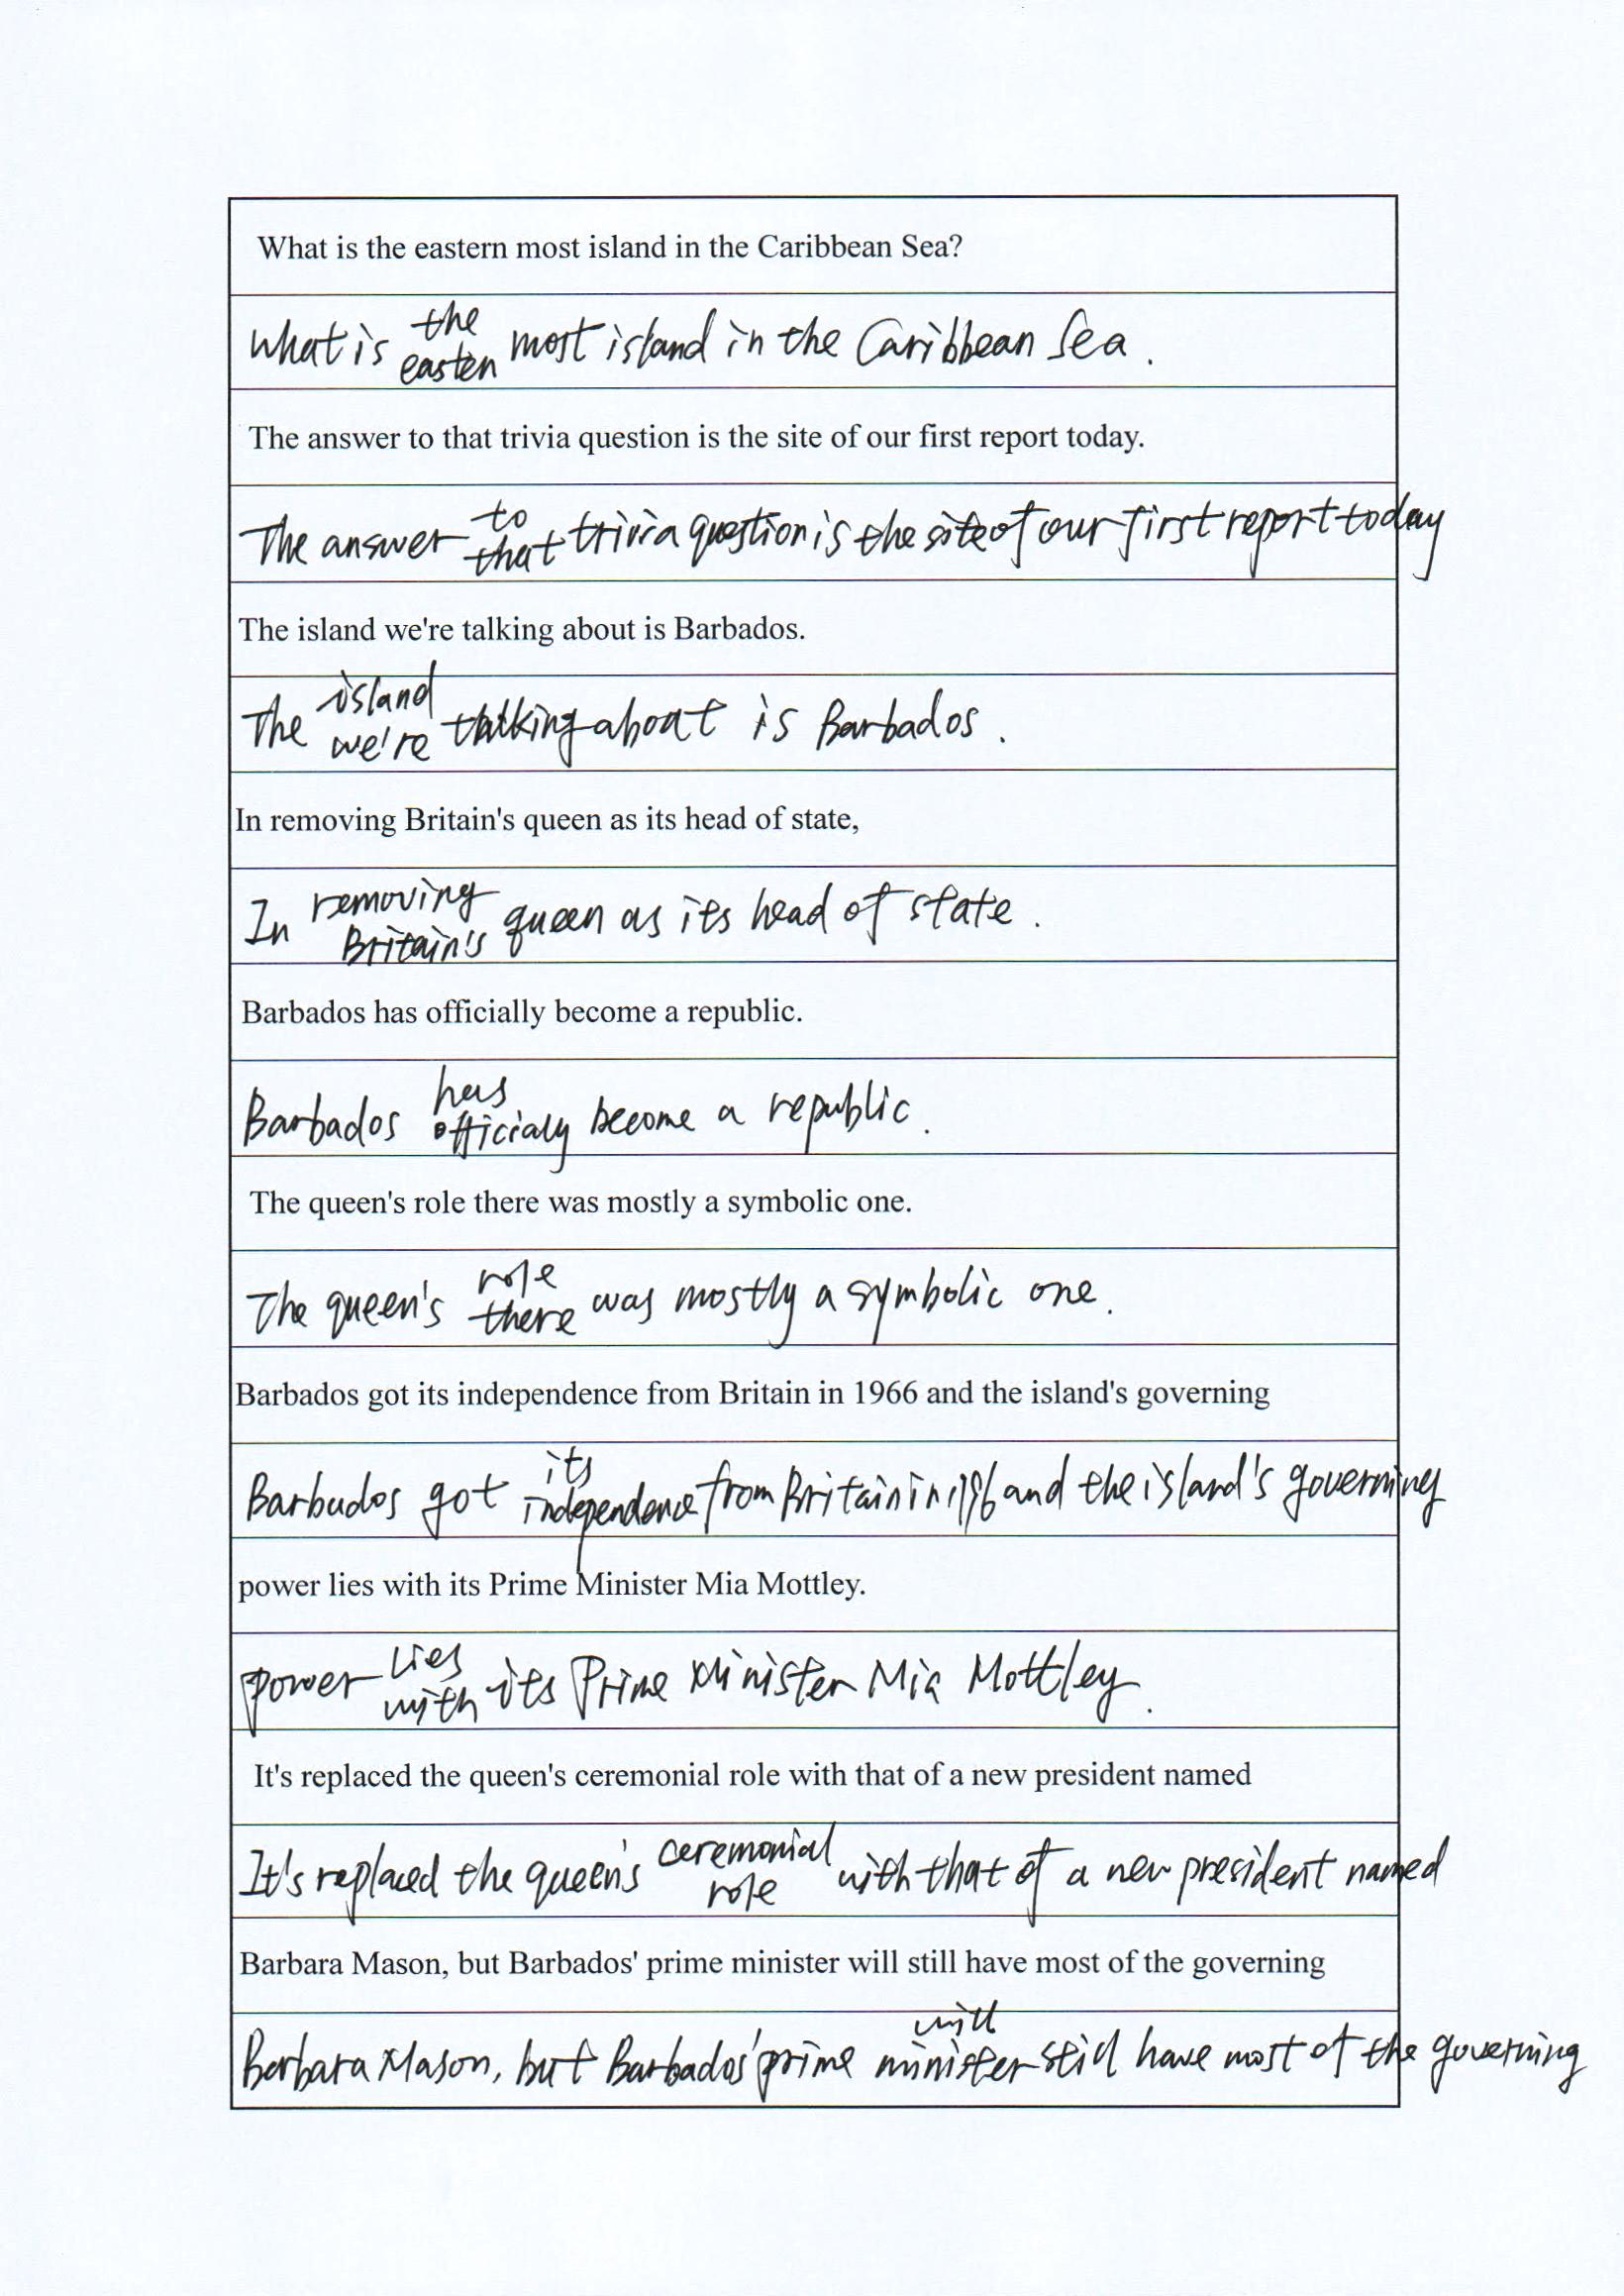 What is the eastern most island in the Caribbean Sea?
What is the easten most island in the Caribbean Sea.
The answer to that trivia question is the site of our first report today.
The answer to that trivia question is the site of our first report today
The island we're talking about is Barbados.
The island we're talking about is Barbados.
In removing Britain's queen as its head of state,
In removing Britain's queen as its head of state.
Barbados has officially become a republic.
Barbados has officialy become a republic.
The queen's role there was mostly a symbolic one.
The queen's role there was mostly a symbolic one.
Barbados got its independence from Britain in 1966 and the island's governing
Barbudos got its independence from Britain in and the island's governing
power lies with its Prime Minister Mia Mottley.
power lies with its Prime Minister Mia Mottley.
It's replaced the queen's ceremonial role with that of a new president named
It's replaced the queen's ceremonial role with that of a new president named
Barbara Mason, but Barbados' prime minister will still have most of the governing
Barbara Mason, but Barbados' prime minister will still have most of the governing